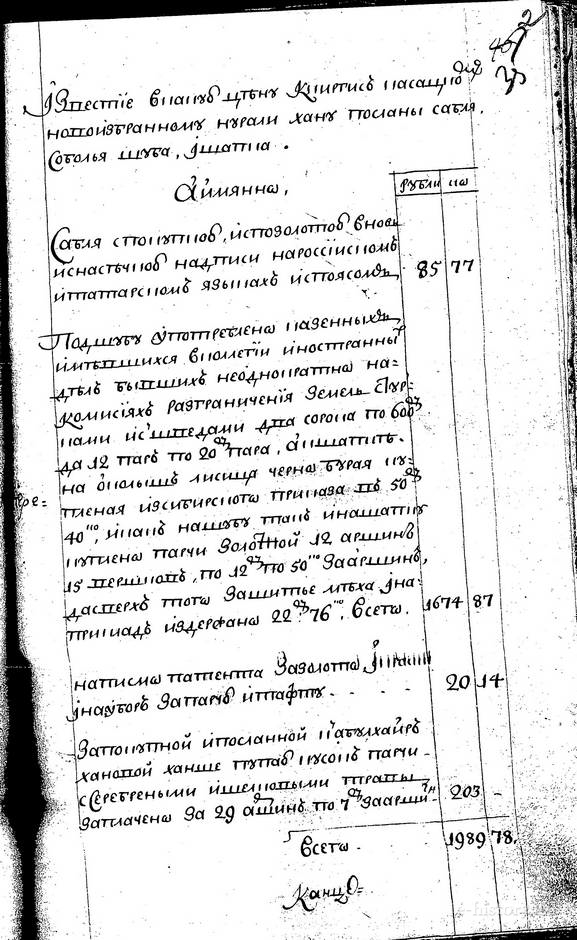 2
Известие вкакую цену киргисъ касацкои
новоизбранному нурали хану посланы сабля,
соболья шуба, ишапка.
Аимянно,
рубли ко
Сабля спокупкою, испозолотою вновь
инасечкою надписи нароссиискомъ
итатарскомъ языкахъ испоясомъ 85 77
Подшубу употреблено казенныхъ
имевшихся вколегии иностранныхъ
делъ бывшихъ неоднократно на-
комисияхъ разграничения земель стур-
ками исшведами два сорока по 600
да 12 паръ по 20 пара, акшапке.
на околышъ лисица черно бурая ку-
пленая изсибирского приказа въ 50
40 ко, икакъ нашубу такъ инашапку
куплено парчи золотой 12 аршинъ
15 вершковъ, по 12 по 50 ко зааршинъ,
дасверхъ того зашитье меха, ина-
прикладъ издержано 22 76 ко, всего. 1674 87
написмо патента Заzолото,
инауборъ запарчю итафту - - - - 20 14
Запокупной ипосланной кабулхаиръ
хановой ханше тутаю кусокъ парчи
ссеребреными ишелковыми травы
заплачено за 29 аршинъ по 7 зааршинъ 203 -
всего. 1989 78.